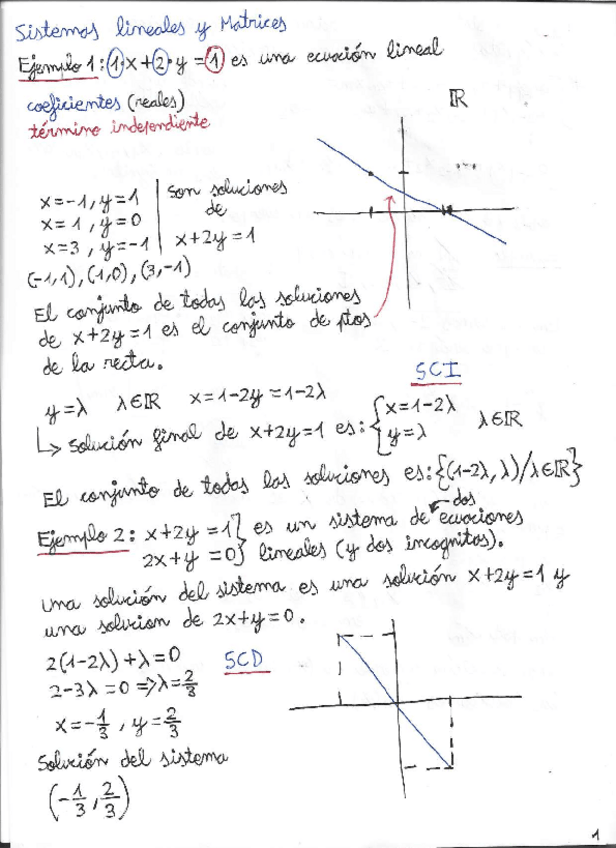 Sistemas lineales y Matrices
Ejemplo 1: 1·x+2·y=1 es una ecuación lineal
coeficientes (reales)
término independiente
ℝ
x=-1, y=1
x=1, y=0
x=3, y=-1
son soluciones
de
x+2y=1
(-1,1), (1,0), (3,-1)
El conjunto de todas las soluciones
de x+2y=1 es el conjunto de ptos
de la recta.
SCI
y=λ λ∈ℝ x=1-2y=1-2λ
↳ Solución final de x+2y=1 es: { x=1-2λ
y=λ
λ∈ℝ
El conjunto de todas las soluciones es: {(1-2λ, λ)/λ∈ℝ}
dos
Ejemplo 2: x+2y=1 } es un sistema de ecuaciones
2x+y=0 } lineales (y dos incognitas).
Una solución del sistema es una solución x+2y=1 y
una solucion de 2x+y=0.
2(1-2λ)+λ=0
SCD
2-3λ=0 => λ=2/3
x=-1/3, y=2/3
Solución del sistema
(-1/3, 2/3)
1